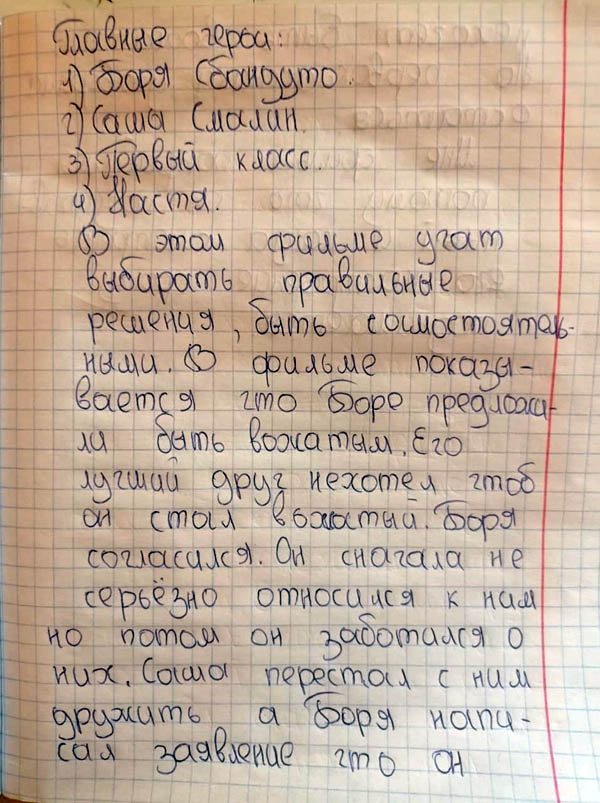 Главные герои:
1) Боря Сбандуто.
2) Саша Смалин.
3) Первый класс.
4) Настя.
В этом фильме учат
выбирать правильные
решения, быть самостоятель-
ными. В фильме показы-
вается что Боре предложи-
ли быть вожатым. Его
лучший друг нехотел чтоб
он стал вожатый. Боря
согласился. Он сначала не
серьёзно относился к ним
но потом он заботился о
них. Саша перестал с ним
дружить а Боря напи-
сал заявление что он